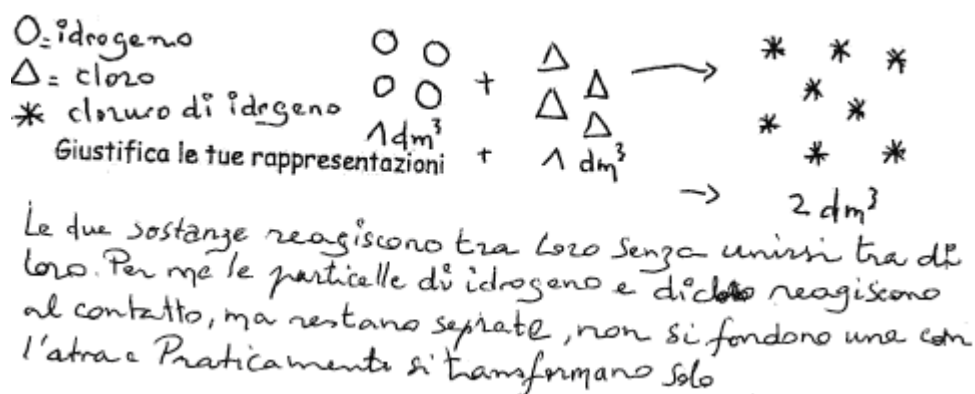 O = idrogeno
Δ = cloro
* cloruro di idrgeno
+
1 dm³ + 1 dm³
Giustifica le tue rappresentazioni
→ 2 dm³
Le due sostanze reagiscono tra loro senza unirsi tra di
loro. Per me le particelle di idrogeno e di cloro reagiscono
al contatto, ma restano seprate, non si fondono una con
l'atra e Praticamente si transformano solo